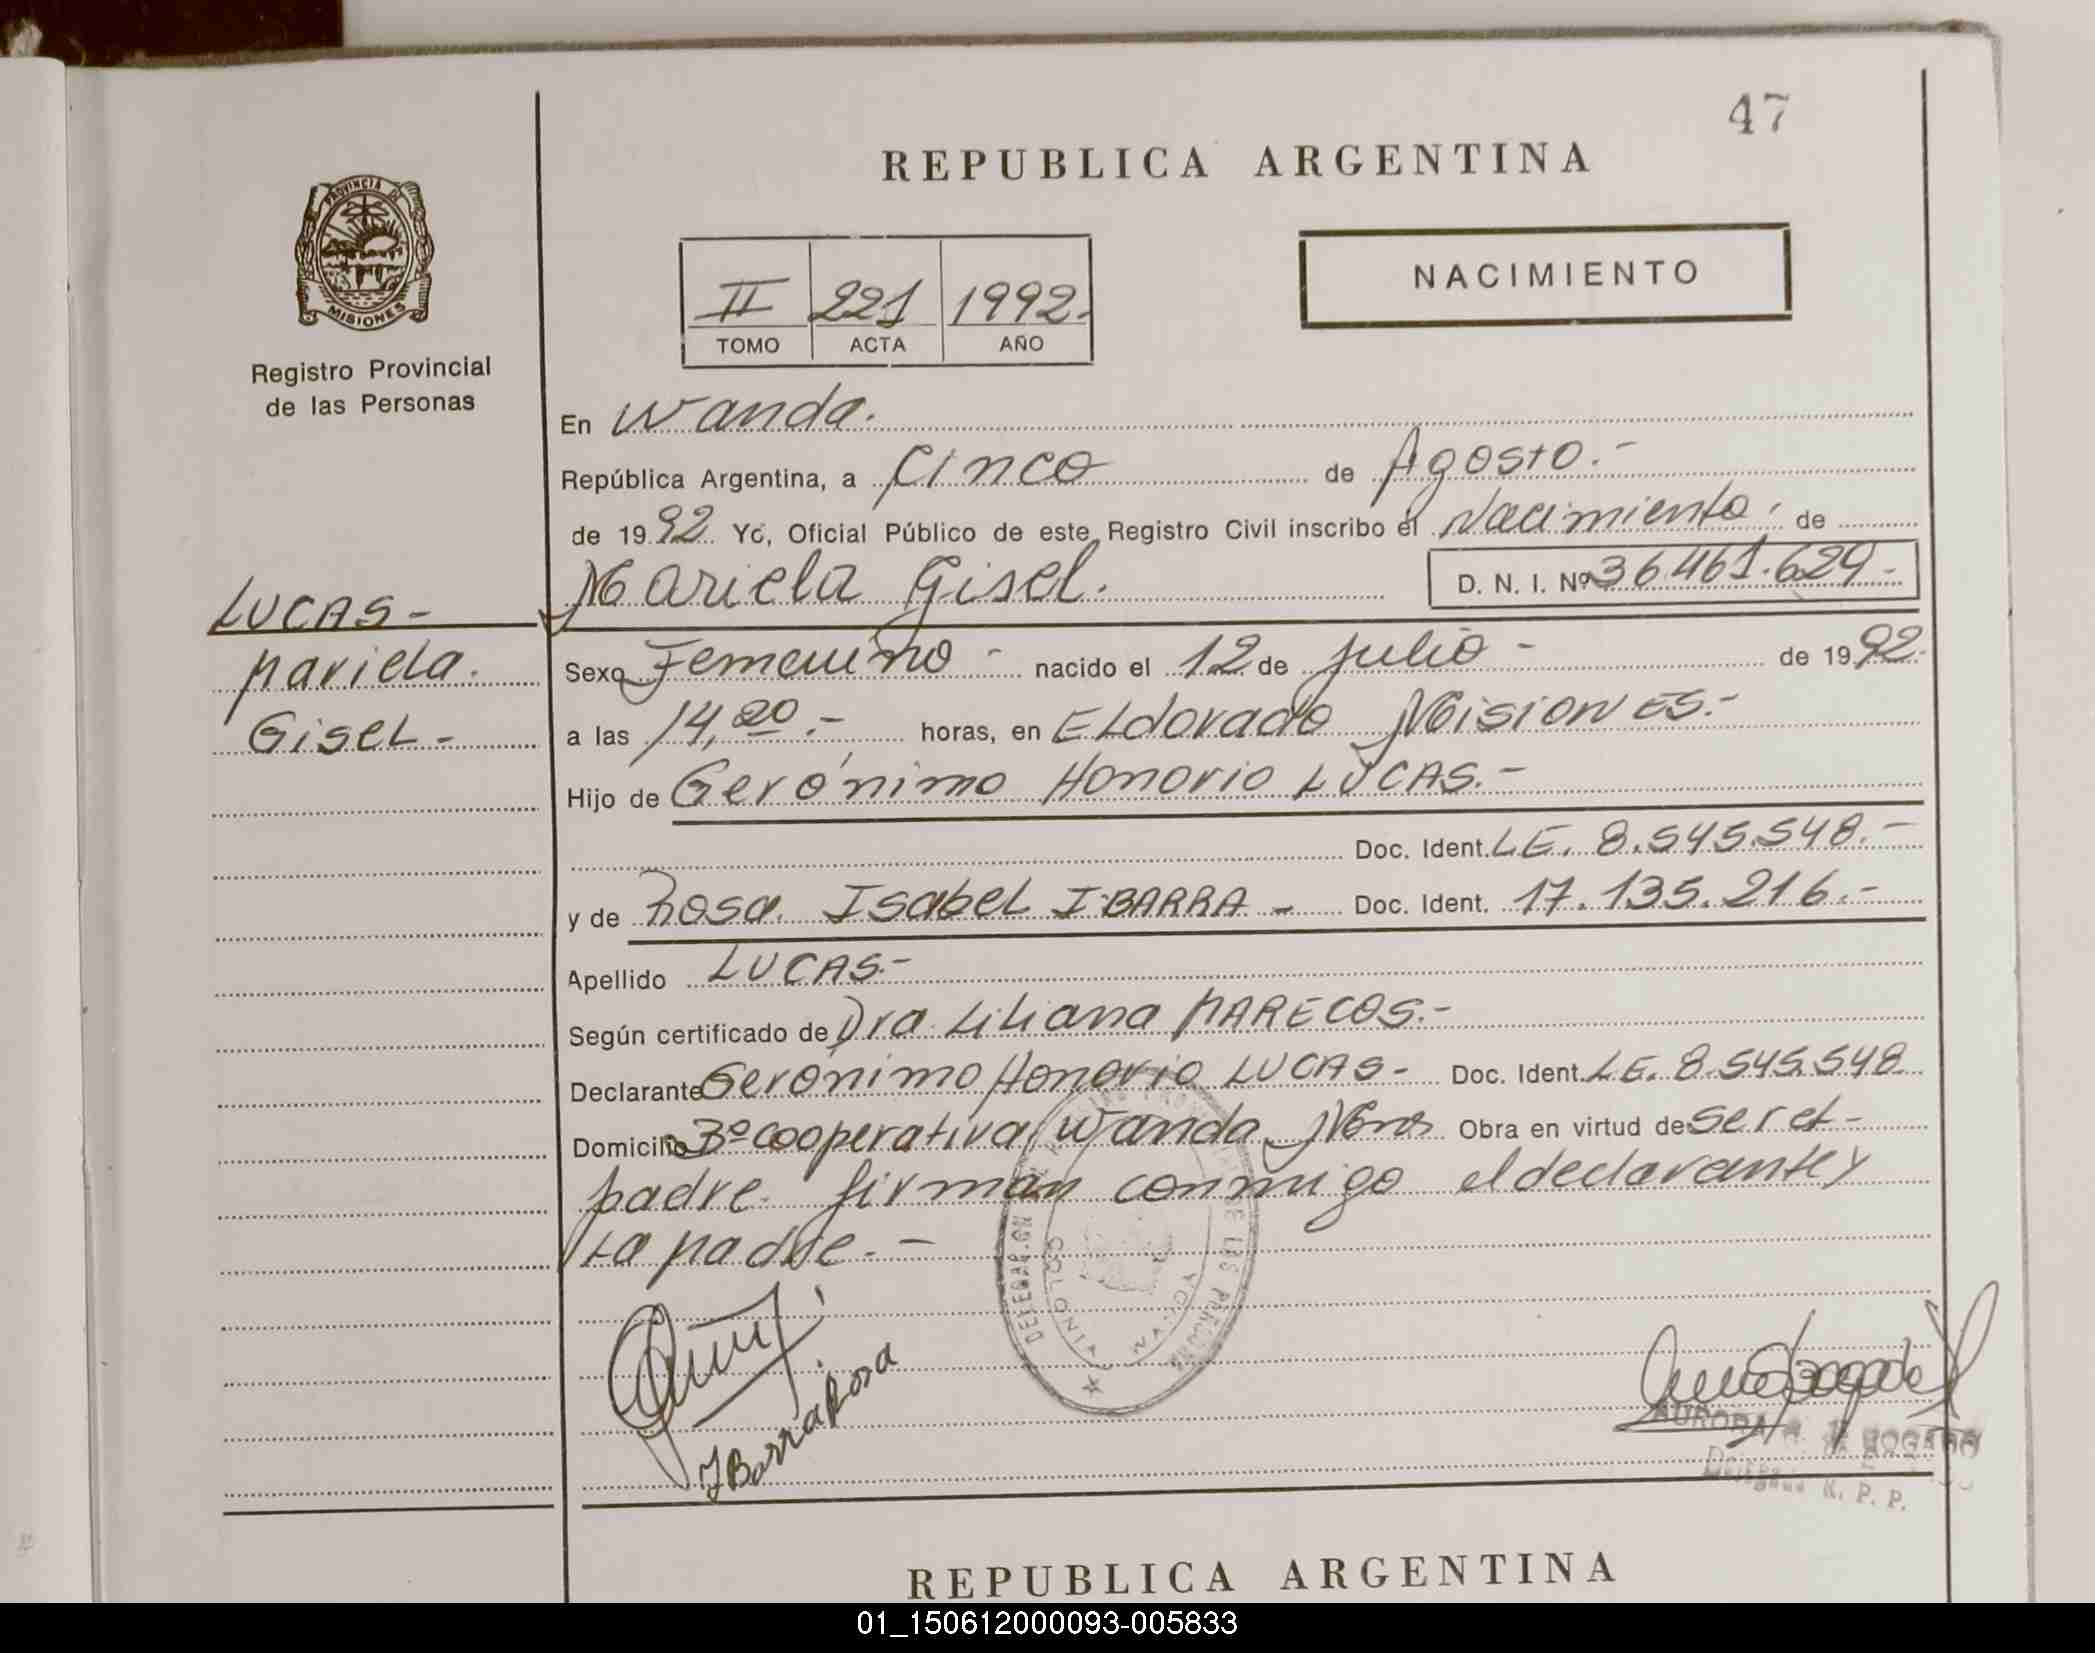 47
REPUBLICA ARGENTINA
PROVINCIA DE
MISIONES
Registro Provincial
de las Personas
II 221 1992.
TOMO ACTA AÑO
NACIMIENTO
En Wanda.
República Argentina, a Cinco de Agosto.-
de 1992 Yo, Oficial Público de este Registro Civil inscribo el Nacimiento. de
Mariela Gisel. D. N. I. Nº 36461.629.-
LUCAS-
Mariela.
Gisel-
Sexo Femenino - nacido el 12 de Julio - de 1992.
a las 14,20.- horas, en Eldorado Misiones.-
Hijo de Gerónimo Honorio LUCAS.-
Doc. Ident. LE. 8.545.548.-
y de Rosa Isabel IBARRA - Doc. Ident. 17.135.216.-
Apellido LUCAS-
Según certificado de Dra. Liliana MARECOS.-
Declarante Gerónimo Honorio LUCAS- Doc. Ident. LE. 8.545.548
Domicilio Bº cooperativa Wanda Mnes Obra en virtud de ser el-
padre. firman conmigo el declarante y
la madre.-
IBarra Rosa
AURORA
Delegada R. P. P.
REPUBLICA ARGENTINA
01_150612000093-005833